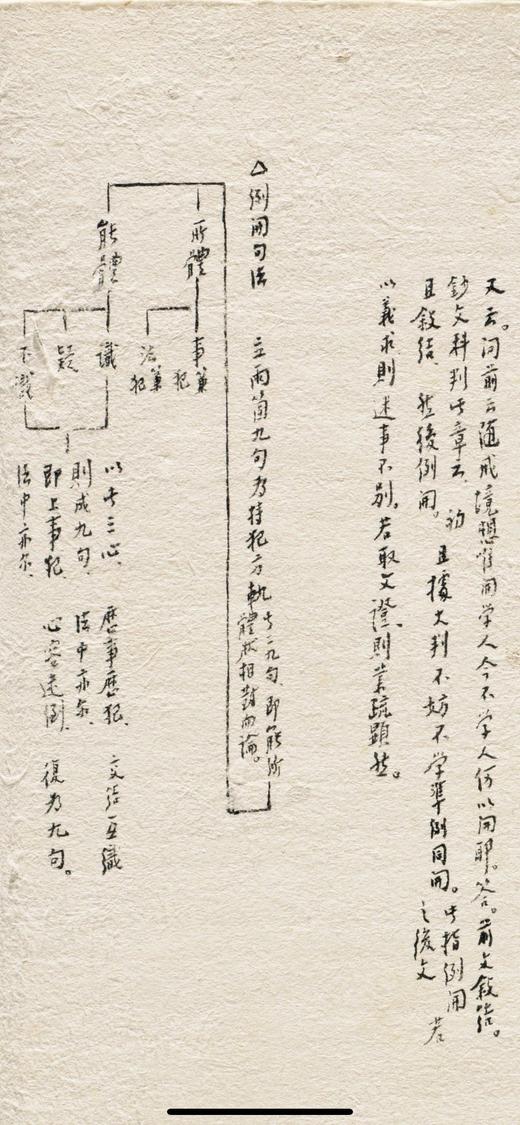 又云。问前云随戒境想唯开学人今不学人何以开耶。答。前文叙结。
钞文科判此章云、初且叙结、然后例开。且據大判不妨不学準例同开。此指例开之後文 若
以義求則迷事不别。若取文證、則業疏顯然。
△例開句法 立兩箇九句为持犯方軌 此二九句、即能所體狀相對而論。
所體
事兼犯
法兼犯
能體
識
疑
不識
以此三心、歷事歷犯、交结互識
則成九句、法中亦尔、
即上事犯、心容迷倒、復为九句。
法中亦尔、